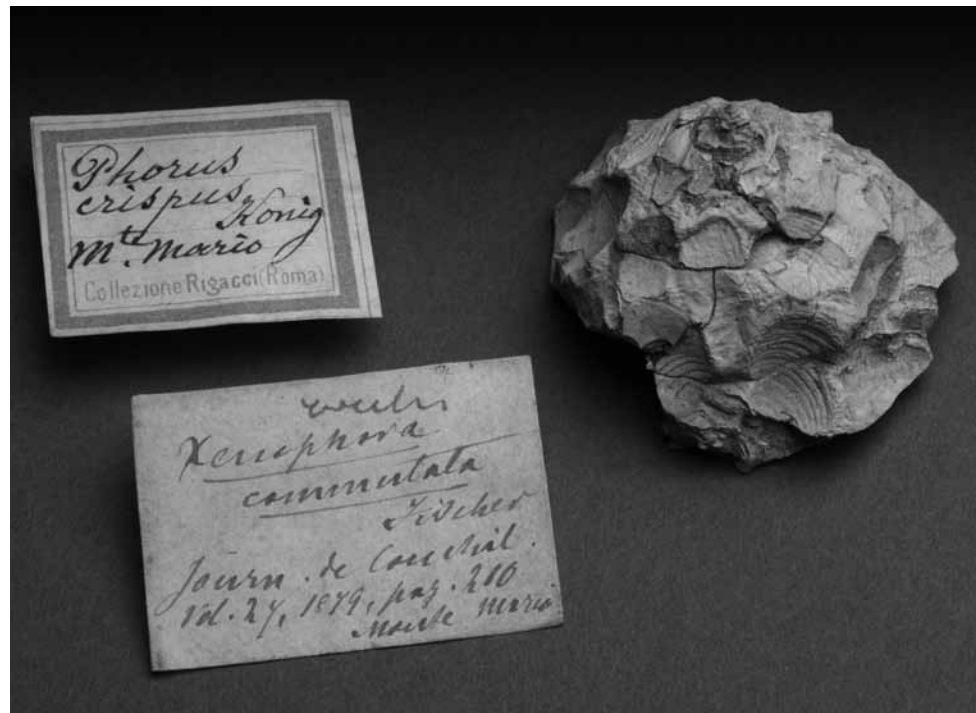 Phorus
crispus König
Mte. Mario
Collezione Rigacci (Roma)
Xenophora
commutata
Fischer
Journ. de Conchil.
Vol. 27, 1879, pag. 210
Monte Mario